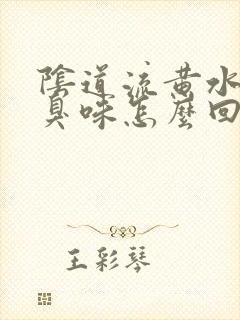 陰道流黃水
臭味怎麼回
王彩琴